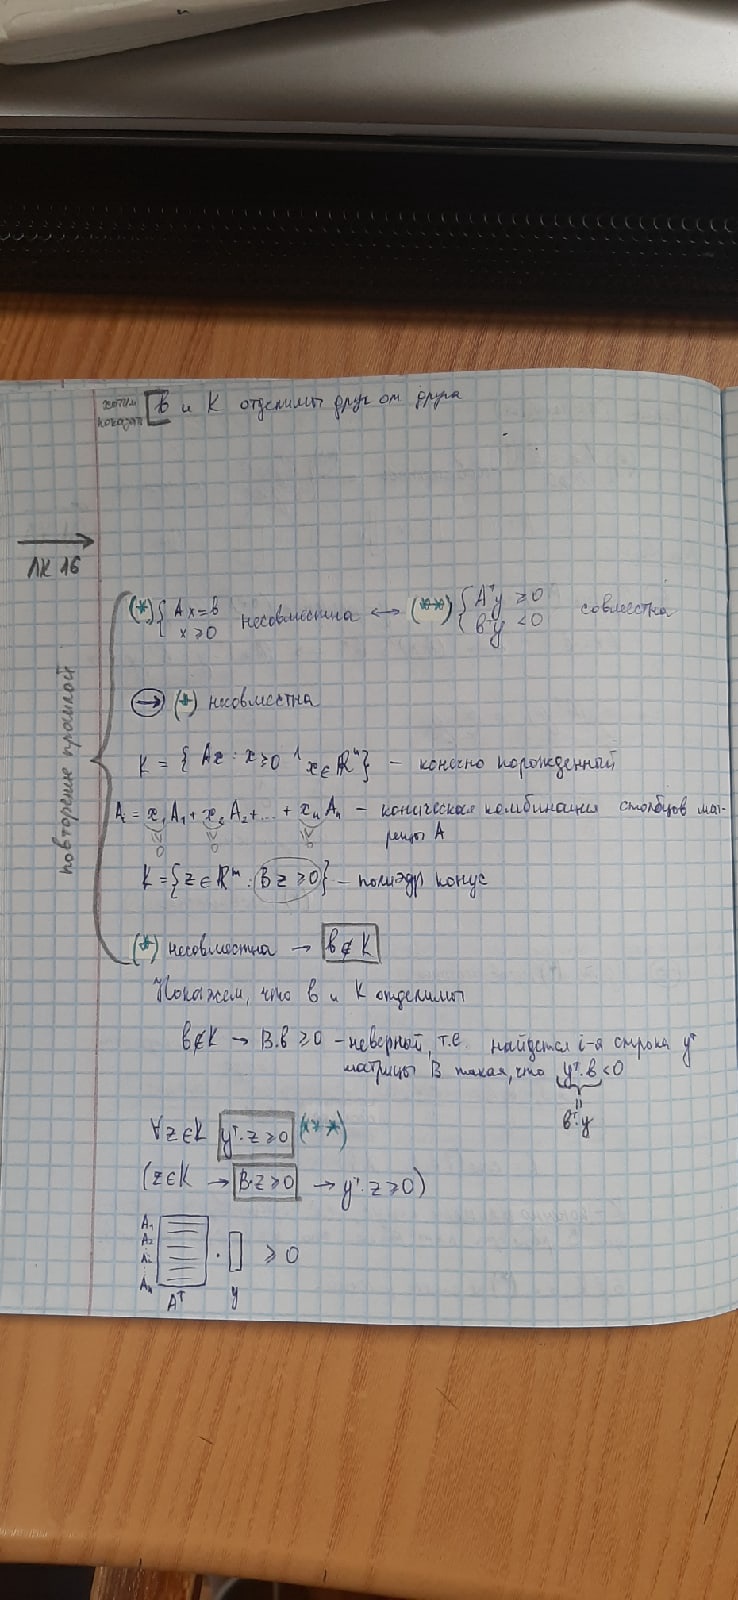 хотим показать b и K отделимы друг от друга
ЛК 16
повторение прошлой
(*) { Ax=b x≥0 несовместна ⟷ (**) { Aᵀy ≥0 bᵀy <0 совместна
→ (*) несовместна
K = { Ax : x≥0, x∈ℝⁿ} – конечно порожденный
A = x₁A₁ + x₂A₂+...+ xₙAₙ – коническая комбинация столбцов мат-
рицы A
K={z∈ℝᵐ : Bz≥0} – полиэдр конус
(*) несовместна → b∉K
Покажем, что b и K отделимы
b∉K → B·b≥0 – неверный, т.е. найдется i-я строка yᵀ
матрицы B такая, что yᵀ·b<0
=
bᵀ·y
∀z∈K yᵀ·z≥0 (***)
(z∈K → B·z≥0 → yᵀ·z≥0)
A₁
A₂
Aₙ
· ≥0
Aᵀ y